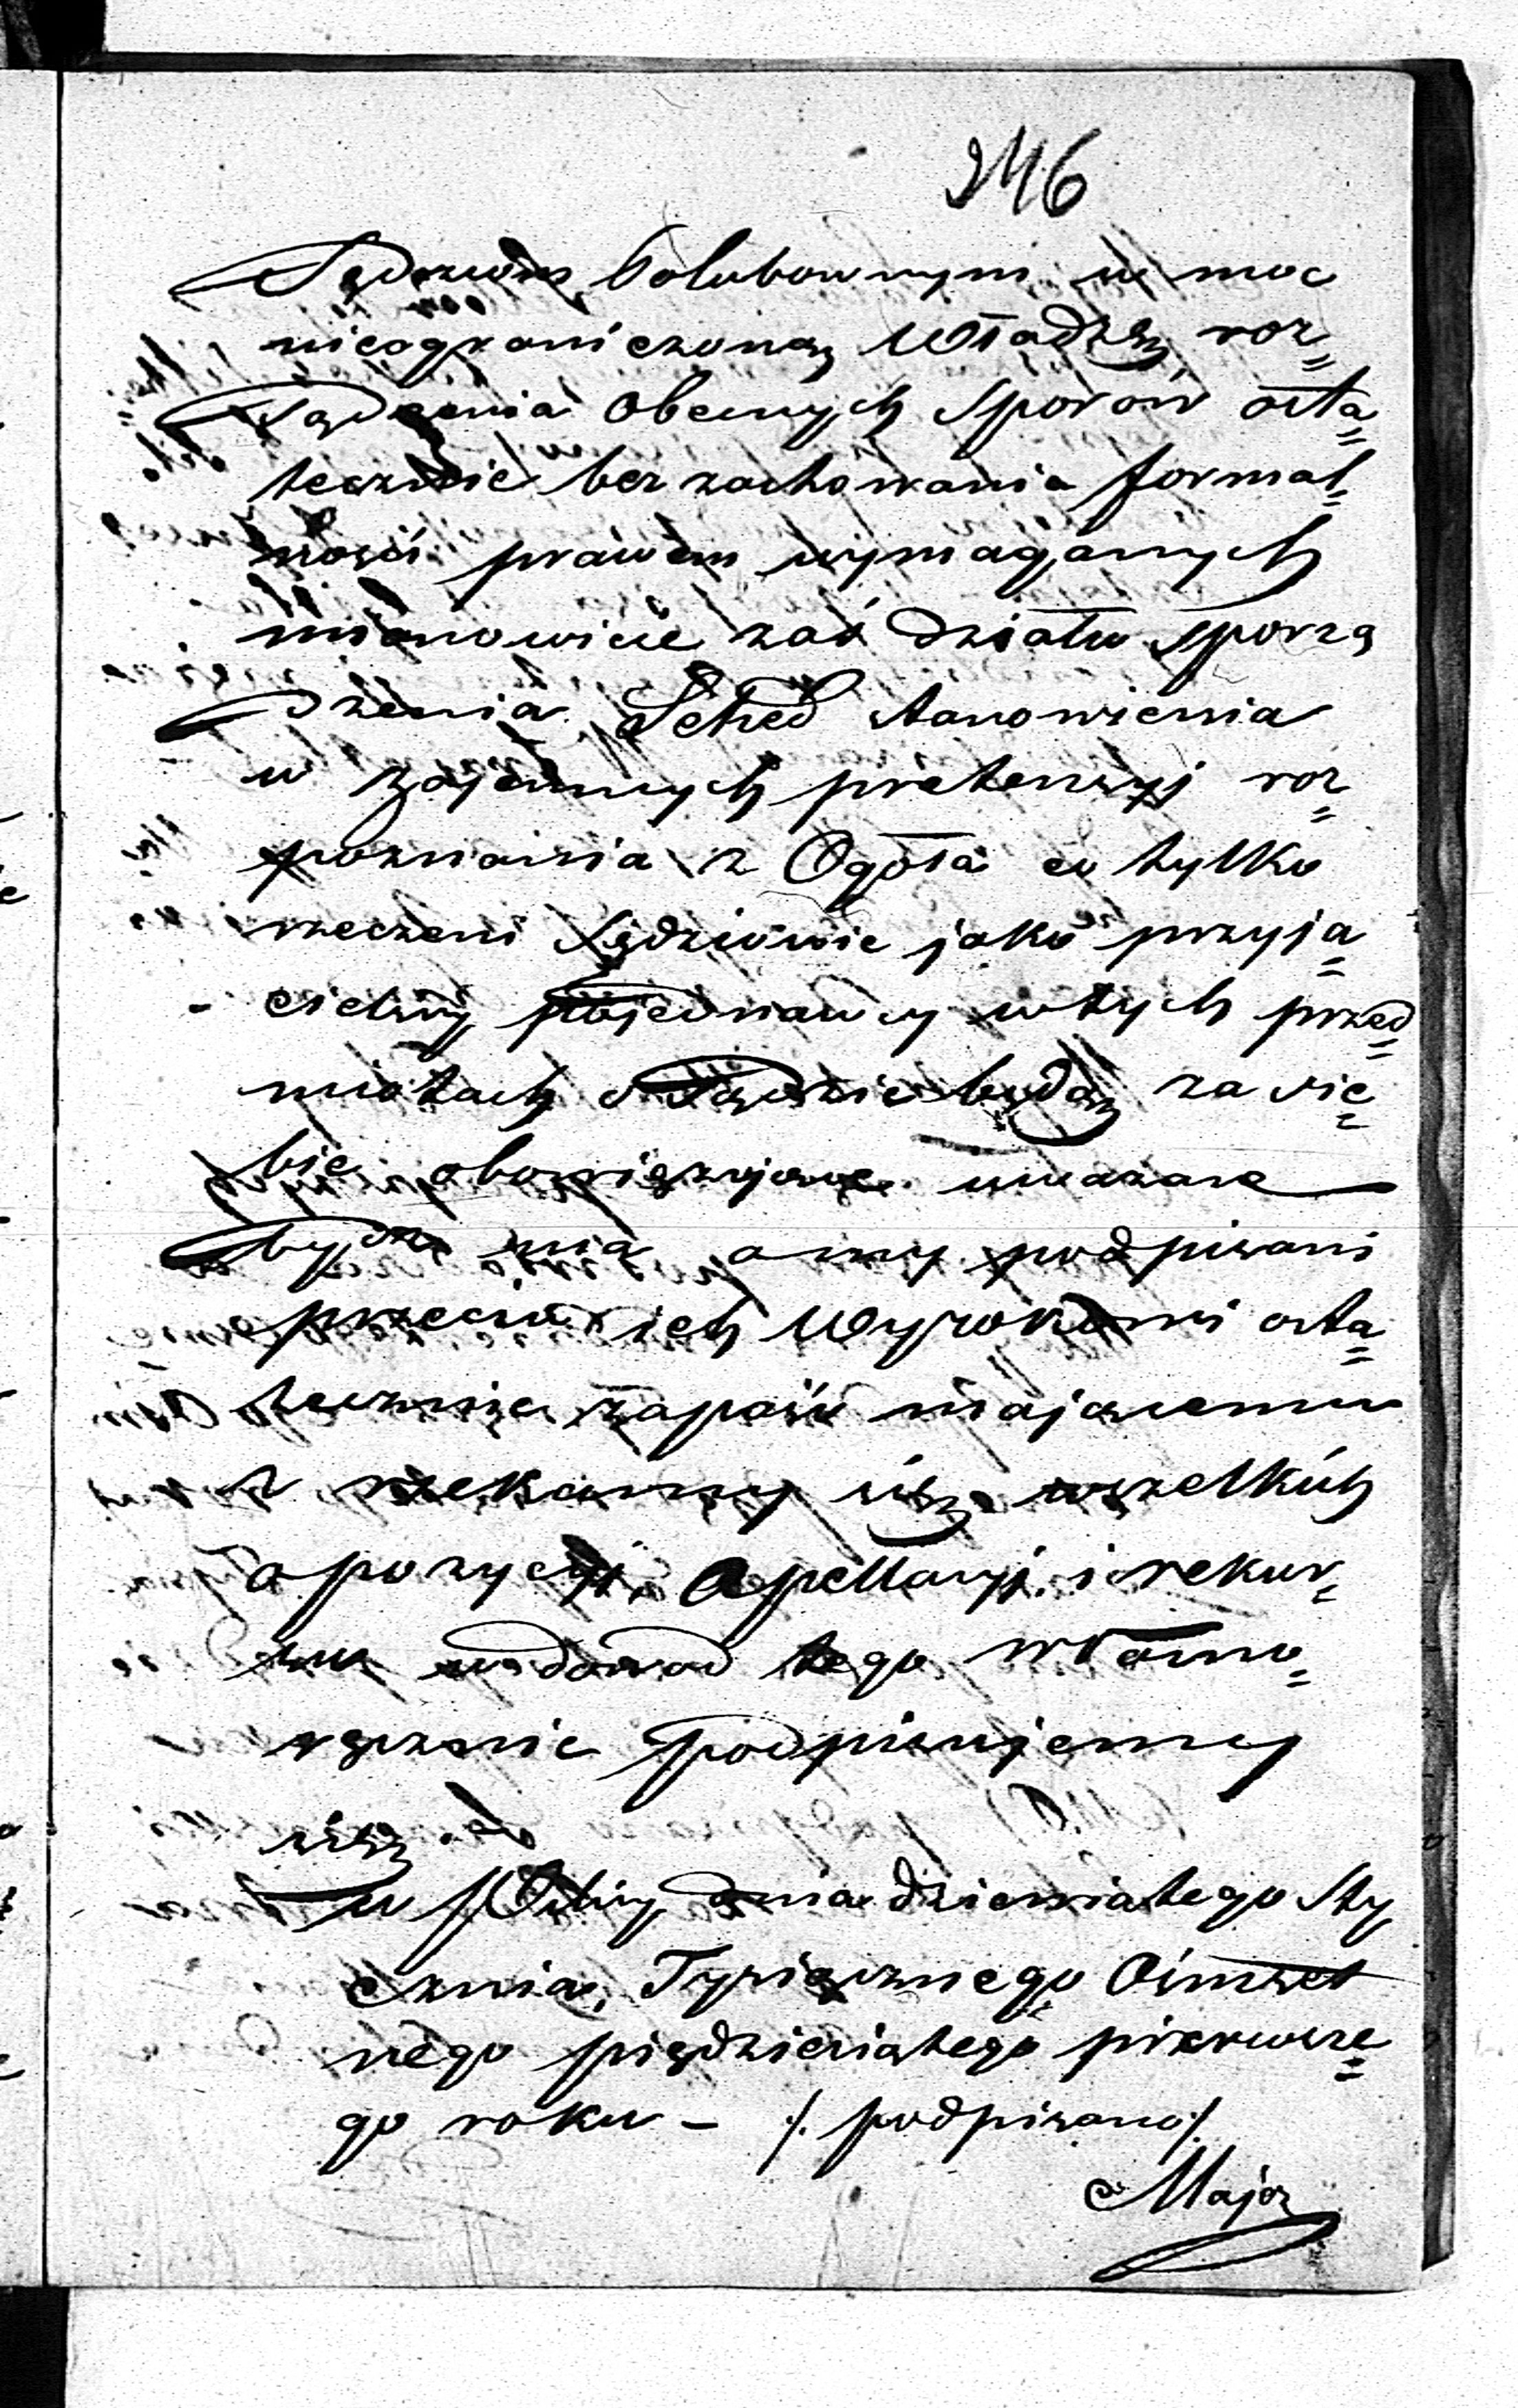 246
Sędziom Polubownym w moc
nieograniczoną Władzą roz=
sądzenia obecnych sporów osta=
tecznie bez zachowania formal=
ności prawem wymaganych
mianowicie zaś działu sporzą
dzenia Sched stanowienia
w zajemnych pretensyj roz=
poznania z Ogóła co tylko
rzeczeni Sędziowie jako przyja=
cielscy pojednawcy wtych przed=
miotach osądzie będą za sie=
bie obowiązujące uważane
być ma amy podpisani
przeciw ich Wyrokowi osta=
tecznie zapaść mającemu
z rzekamy się wszelkich
apozycyi, Apellacyj i rekur=
su wdowod tego własno=
ręcznie podpisujemy
się. –
w dnia dziewiątego Sty
cznia, Tysiącznego Ośmset
nego piędziesiątego pierwsze=
go roku – /. podpisano /.
Major